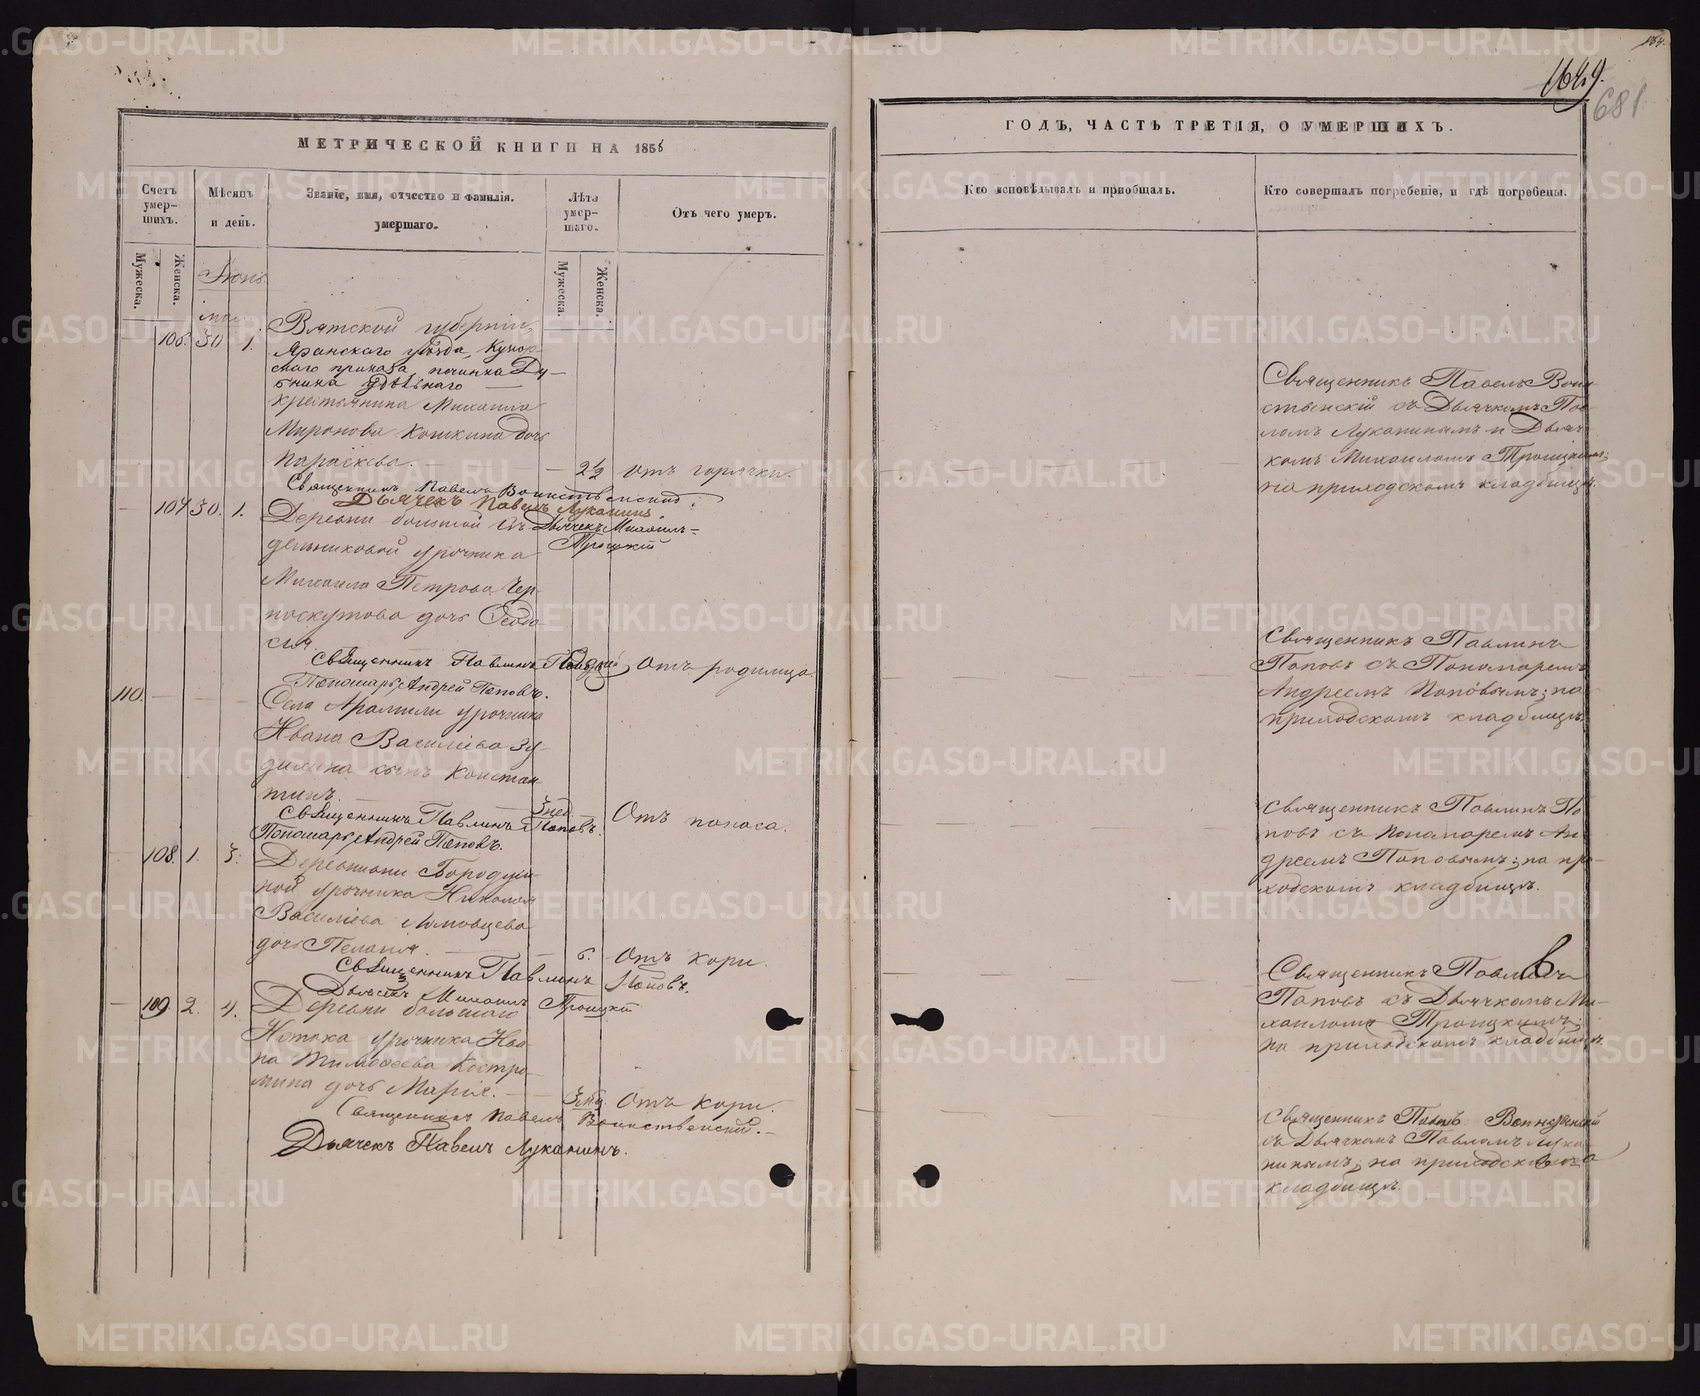 МЕТРИЧЕСКОЙ КНИГИ НА 1856
Счетъ умер-шихъ.
Мѣсяцъ и день.
Званіе, имя, отчество и фамилія. умершаго.
Лѣта умер-шаго.
Отъ чего умеръ.
Мужеска. Женска.
Мужеска. Женска.
Іюнь.
маі
Вятской губерніи,
106. 30 1. Яранскаго уѣзда, Кукар-
скаго приказа, починка Ду-
бника удѣльнаго
крестьянина Михаила
Миронова Кошкина дочь
Параскева. 2½ отъ горячки.
Священникъ Павелъ Воинственскій.
Дьячекъ Павелъ Луканинъ
107 30. 1. Деревни большой Си-
Дьячекъ Михаилъ
дельниковой урочника
Троицкій
Михаила Петрова Чер-
поскутова дочь Ѳеодо-
сія
Отъ родимца
Священникъ Павлинъ Поповъ
Пономарь Андрей Поповъ.
110. Села Арамили урочника
Ивана Василіева Зу-
дилина сынъ Констан-
тинъ. 3 нед. Отъ поноса.
Священникъ Павлинъ Поповъ.
Пономарь Андрей Поповъ.
108. 1. 3. Деревни Бородули-
ной урочника Николая
Василіева
дочь Пелагія. 6. Отъ кори.
Священникъ Павлинъ Поповъ.
Дьячекъ Михаилъ Троицкій
109. 2. 4. Деревни большаго
Истока урочника Ива-
на Тимоѳеева Костро-
мина дочь Марія. Отъ кори.
Священникъ Павелъ Воинственскій.
Дьячекъ Павелъ Луканинъ.
1649.
681
ГОДЪ, ЧАСТЬ ТРЕТІЯ, О УМЕРШИХЪ.
Кто исповѣдывалъ и пріобщалъ.
Кто совершалъ погребеніе, и гдѣ погребены.
Священникъ Павелъ Воин-
ственскій съ Дьячкомъ Пав-
ломъ Луканинымъ и Дьяч-
комъ Михаиломъ Троицкимъ;
на приходскомъ кладбищѣ.
Священникъ Павлинъ
Поповъ съ Пономаремъ
Андреемъ Поповымъ; на
приходскомъ кладбищѣ.
Священникъ Павлинъ По-
повъ съ Пономаремъ Ан-
дреемъ Поповымъ; на при-
ходскомъ кладбищѣ.
Священникъ Павлинъ
Поповъ съ Дьячкомъ Ми-
хаиломъ Троицкимъ;
на приходскомъ кладбищѣ.
Священникъ Павелъ Воинственскій
съ Дьячкомъ Павломъ Лука-
нинымъ; на приходскомъ
кладбищѣ.
METRIKI.GASO-URAL.RU